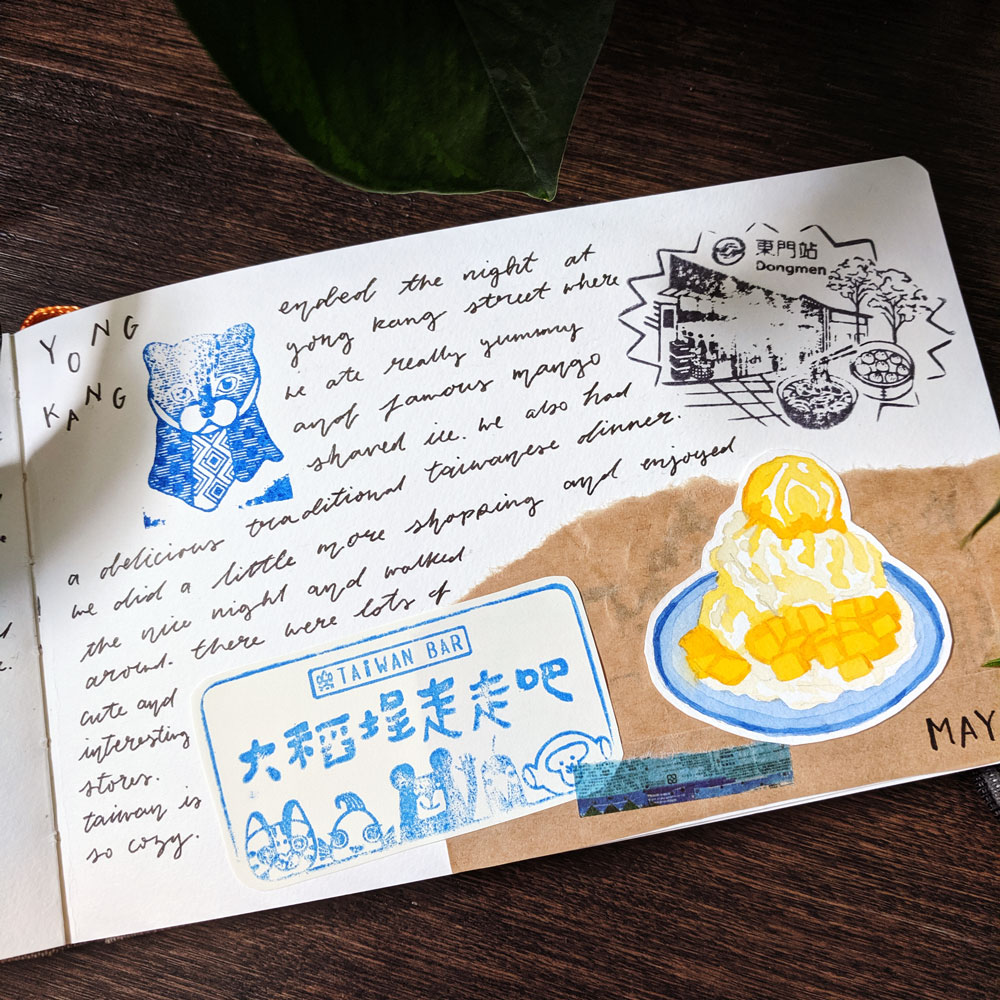 YONG
KANG
ended the night at
yong kang street where
we ate really yummy
and famous mango
shaved ice. we also had
a delicious traditional taiwanese dinner.
we did a little more shopping and enjoyed
the nice night and walked
around. there were lots of
cute and
interesting
stores.
taiwan is
so cozy.
東門站
Dongmen
TAIWAN BAR
大稻埕走走吧
MAY